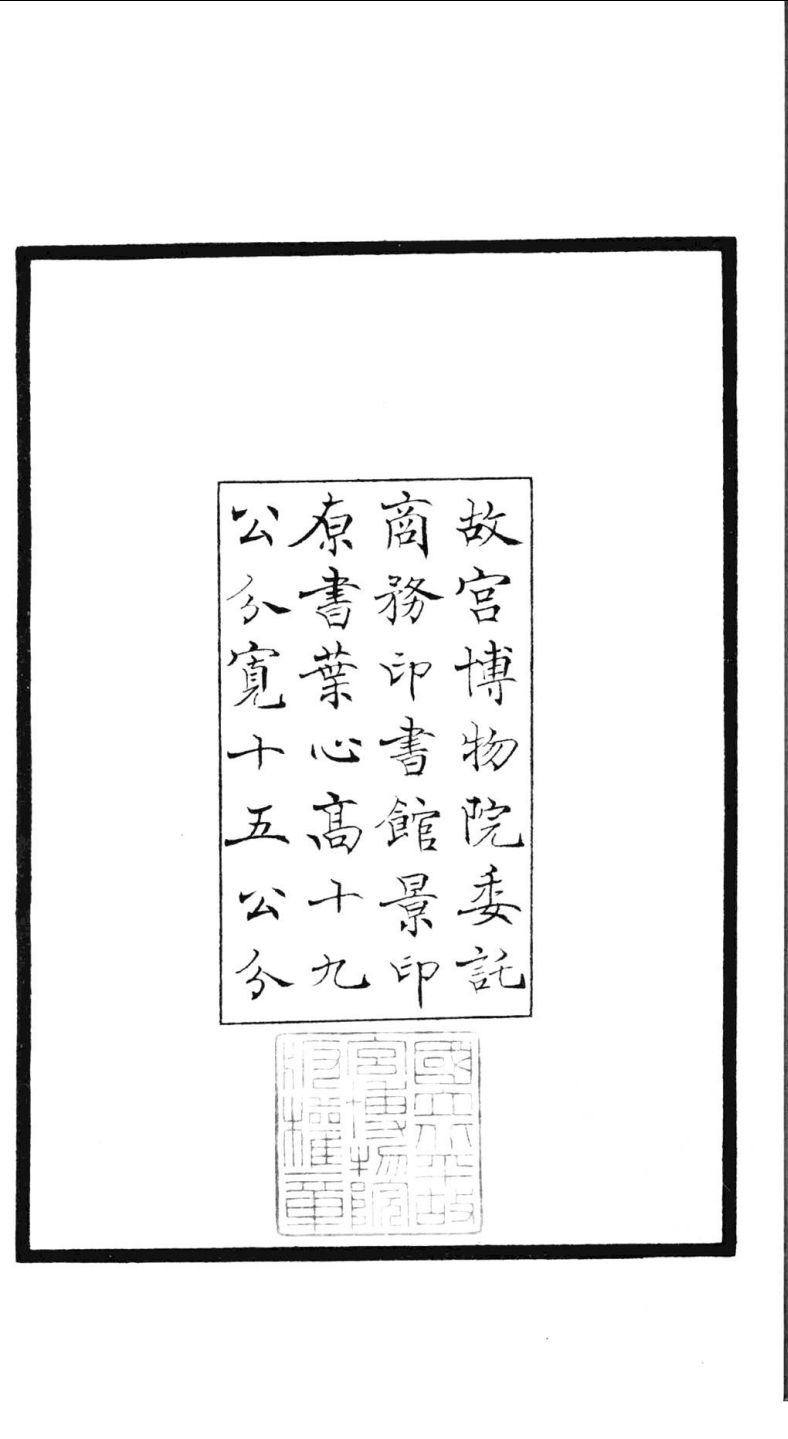 故宫博物院委託
商務印書館景印
原書葉心髙十九
公分寛十五公分
國立北平故
宫博物院
版權章